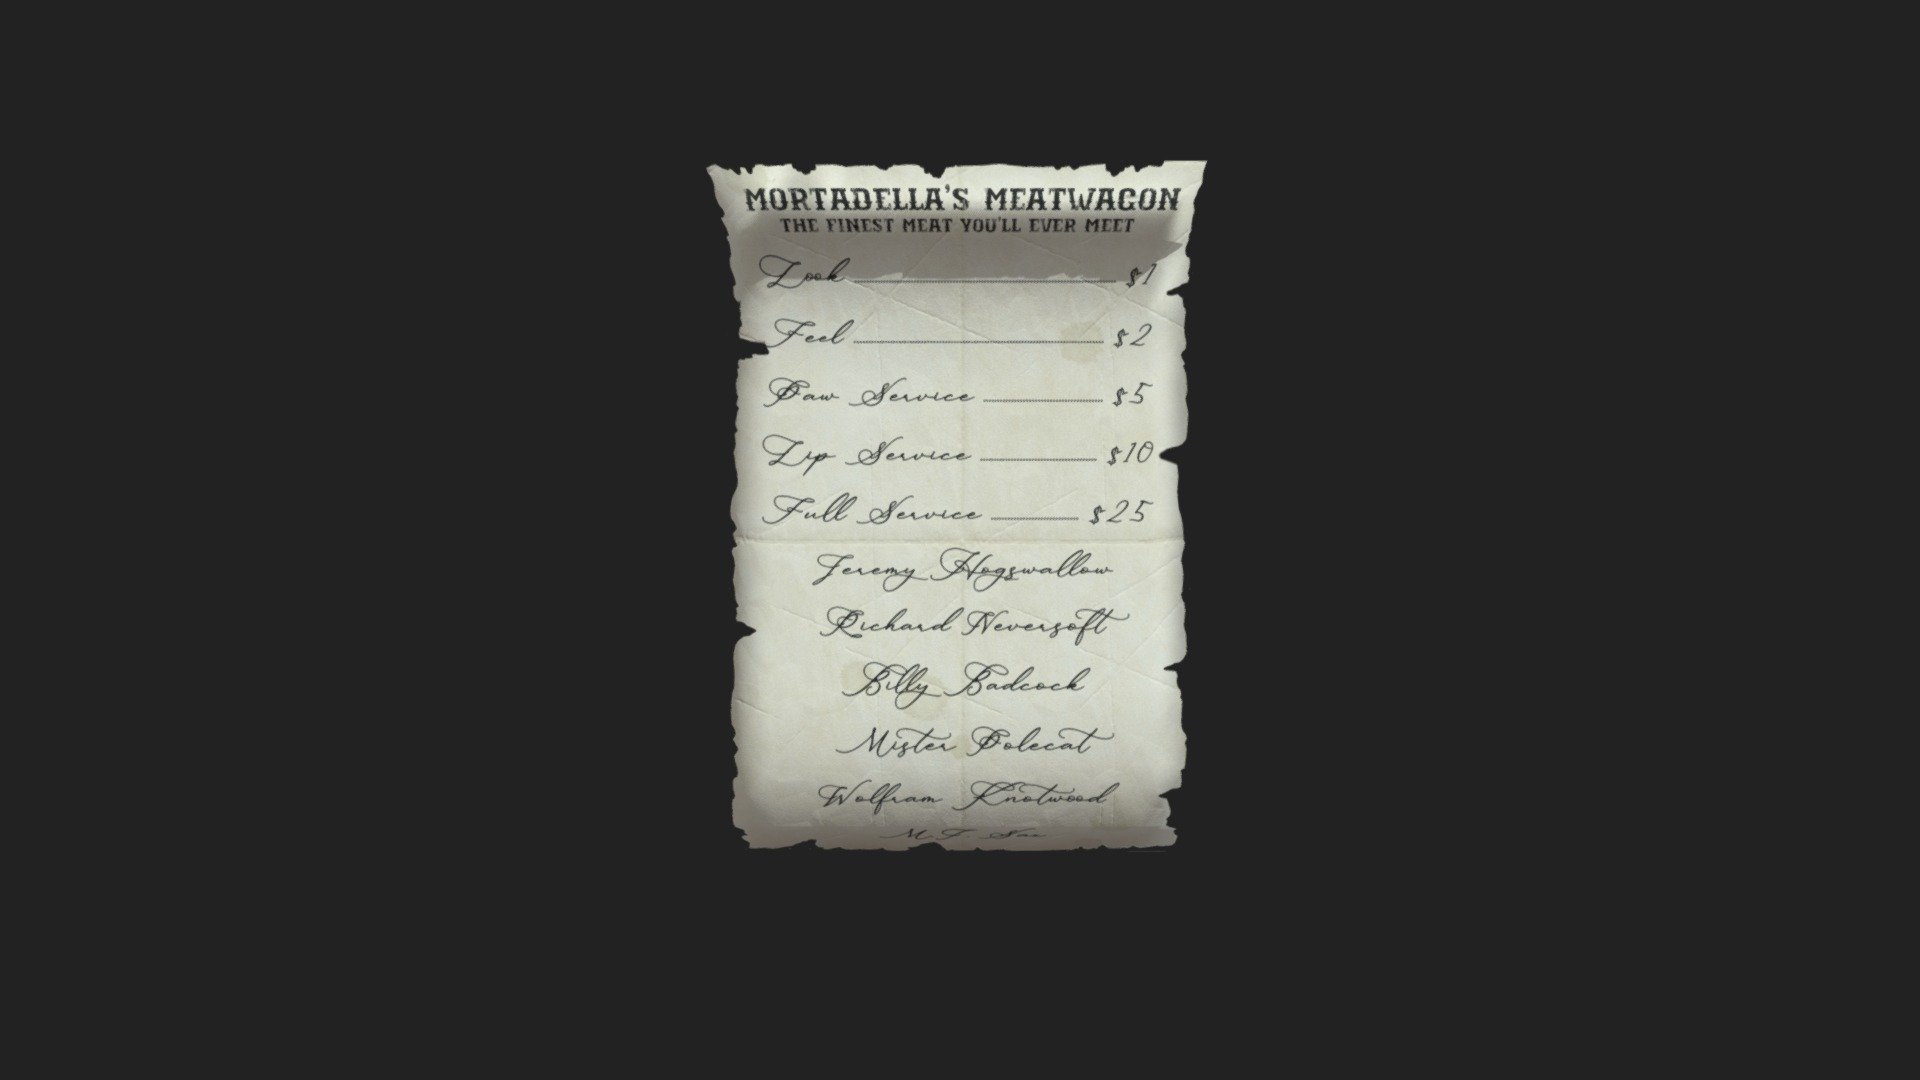 MORTADELLA'S MEATWAGON
THE FINEST MEAT YOU'LL EVER MEET
Look $1
Feel $2
Paw Service $5
Lip Service $10
Full Service $25
Jeremy Hogswallow
Richard Neversoft
Billy Badcock
Mister Polecat
Wolfram Knotwood
M.F.